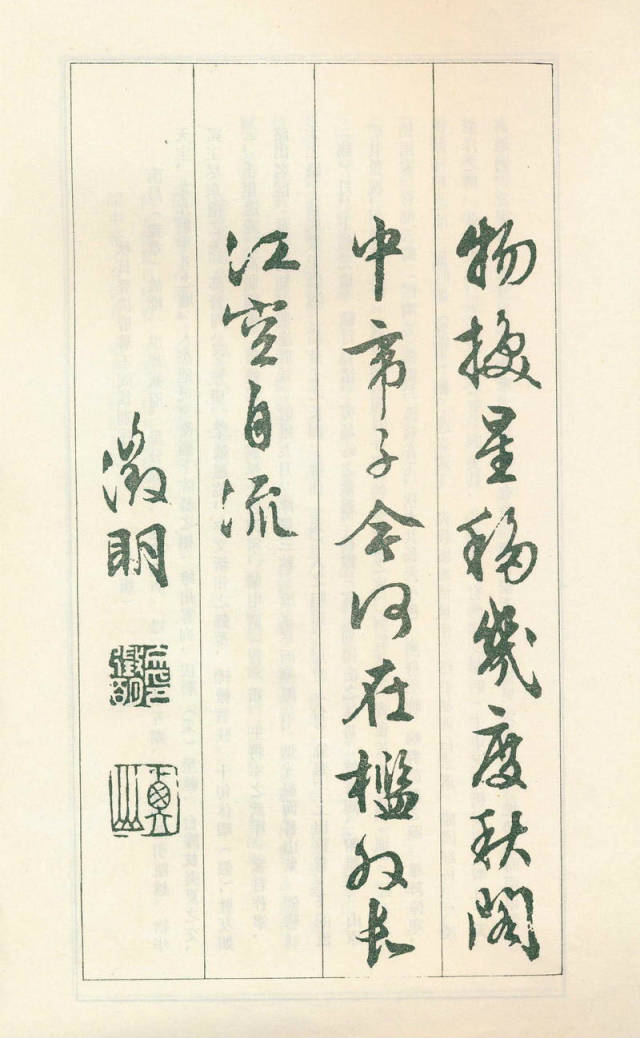 物換星移幾度秋閣
中帝子今何在檻外長
江空自流
徵明